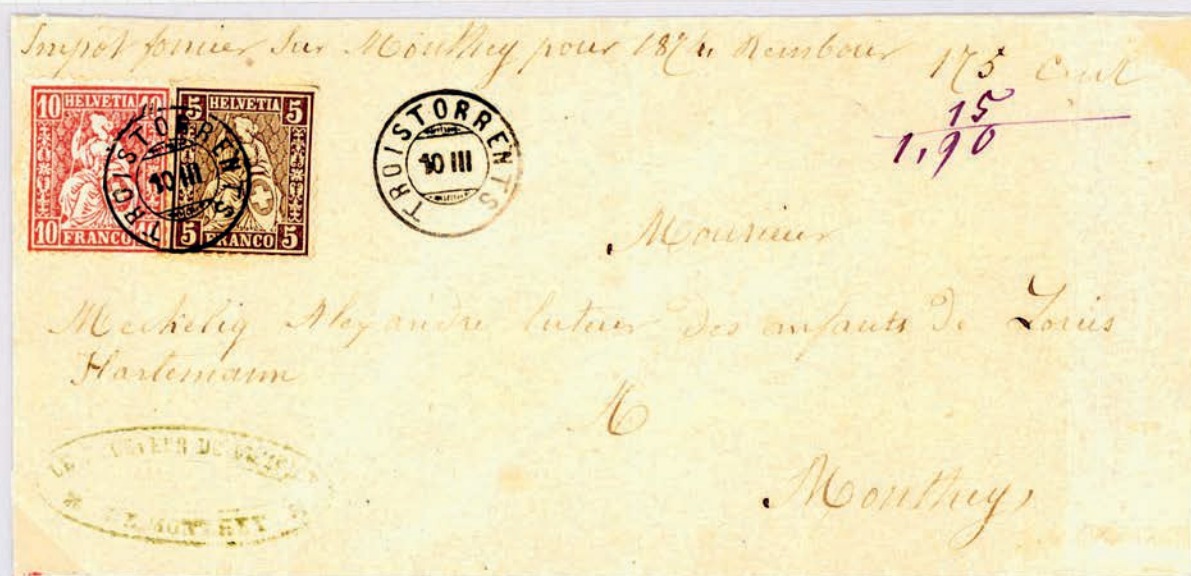 Impot foncier Sur Monthey pour 1874 Rembour 175 cent
15
1,90
10 HELVETIA 10
10 FRANCO 10
5 HELVETIA 5
5 FRANCO 5
TROISTORRENTS
10 III
TROISTORRENTS
10 III
Monsieur
Alexandre tuteur des enfants de Louis
Hartemann
A
Monthey
LE DE
DE MONTHEY